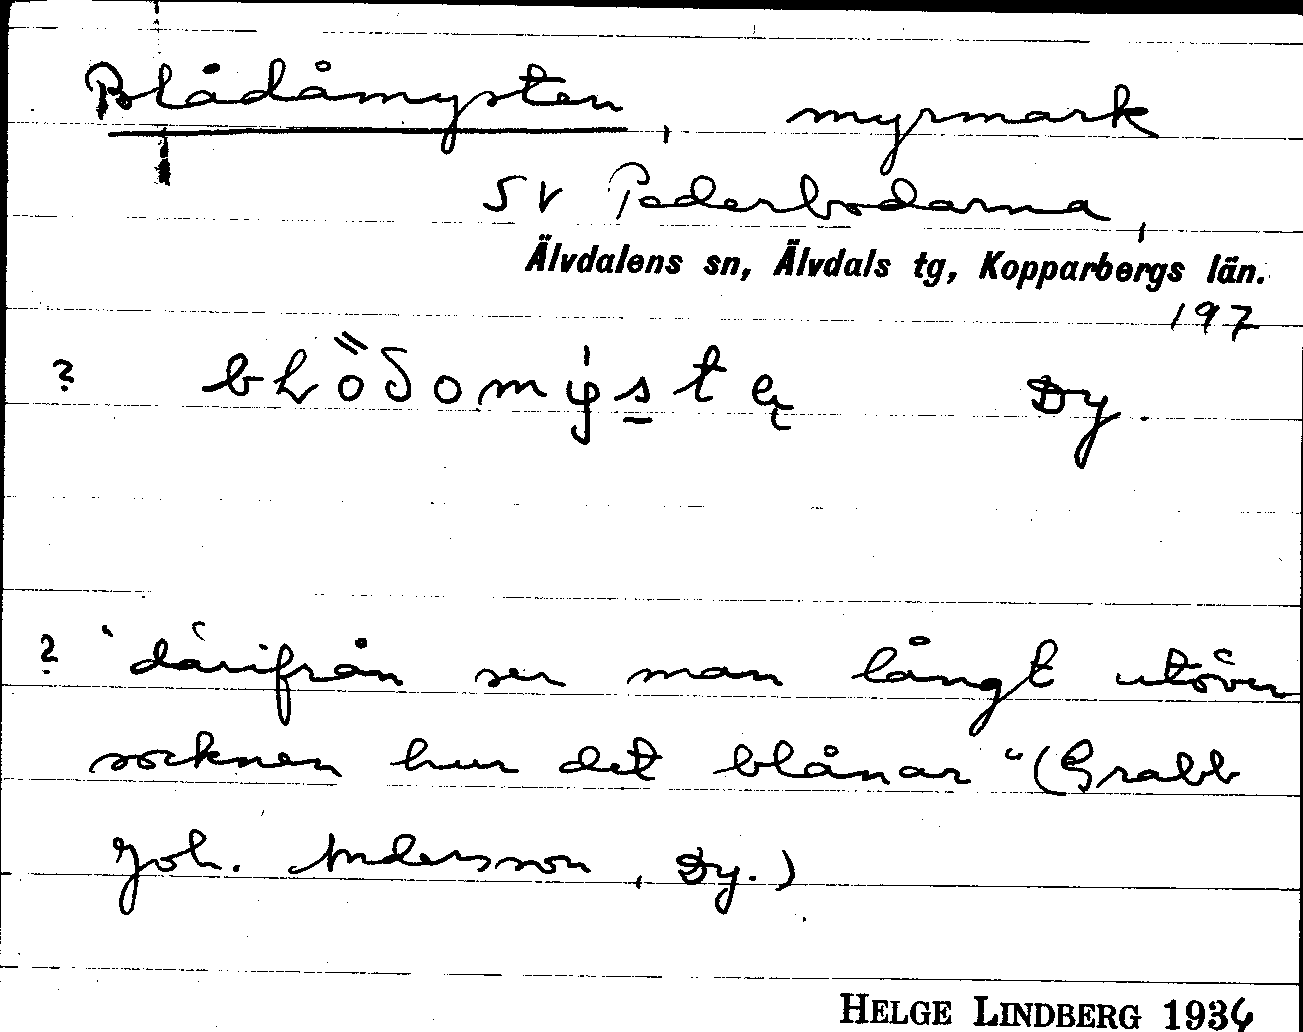 Blådåmysten, myrmark
SV Pederbodarna,
Älvdalens sn, Älvdals tg, Kopparbergs län.
197
? Dy.
? "därifrån ser man långt utöver
socknen hur det blånar" (Grabb
Joh. Andersson, Dy.)
HELGE LINDBERG 1936